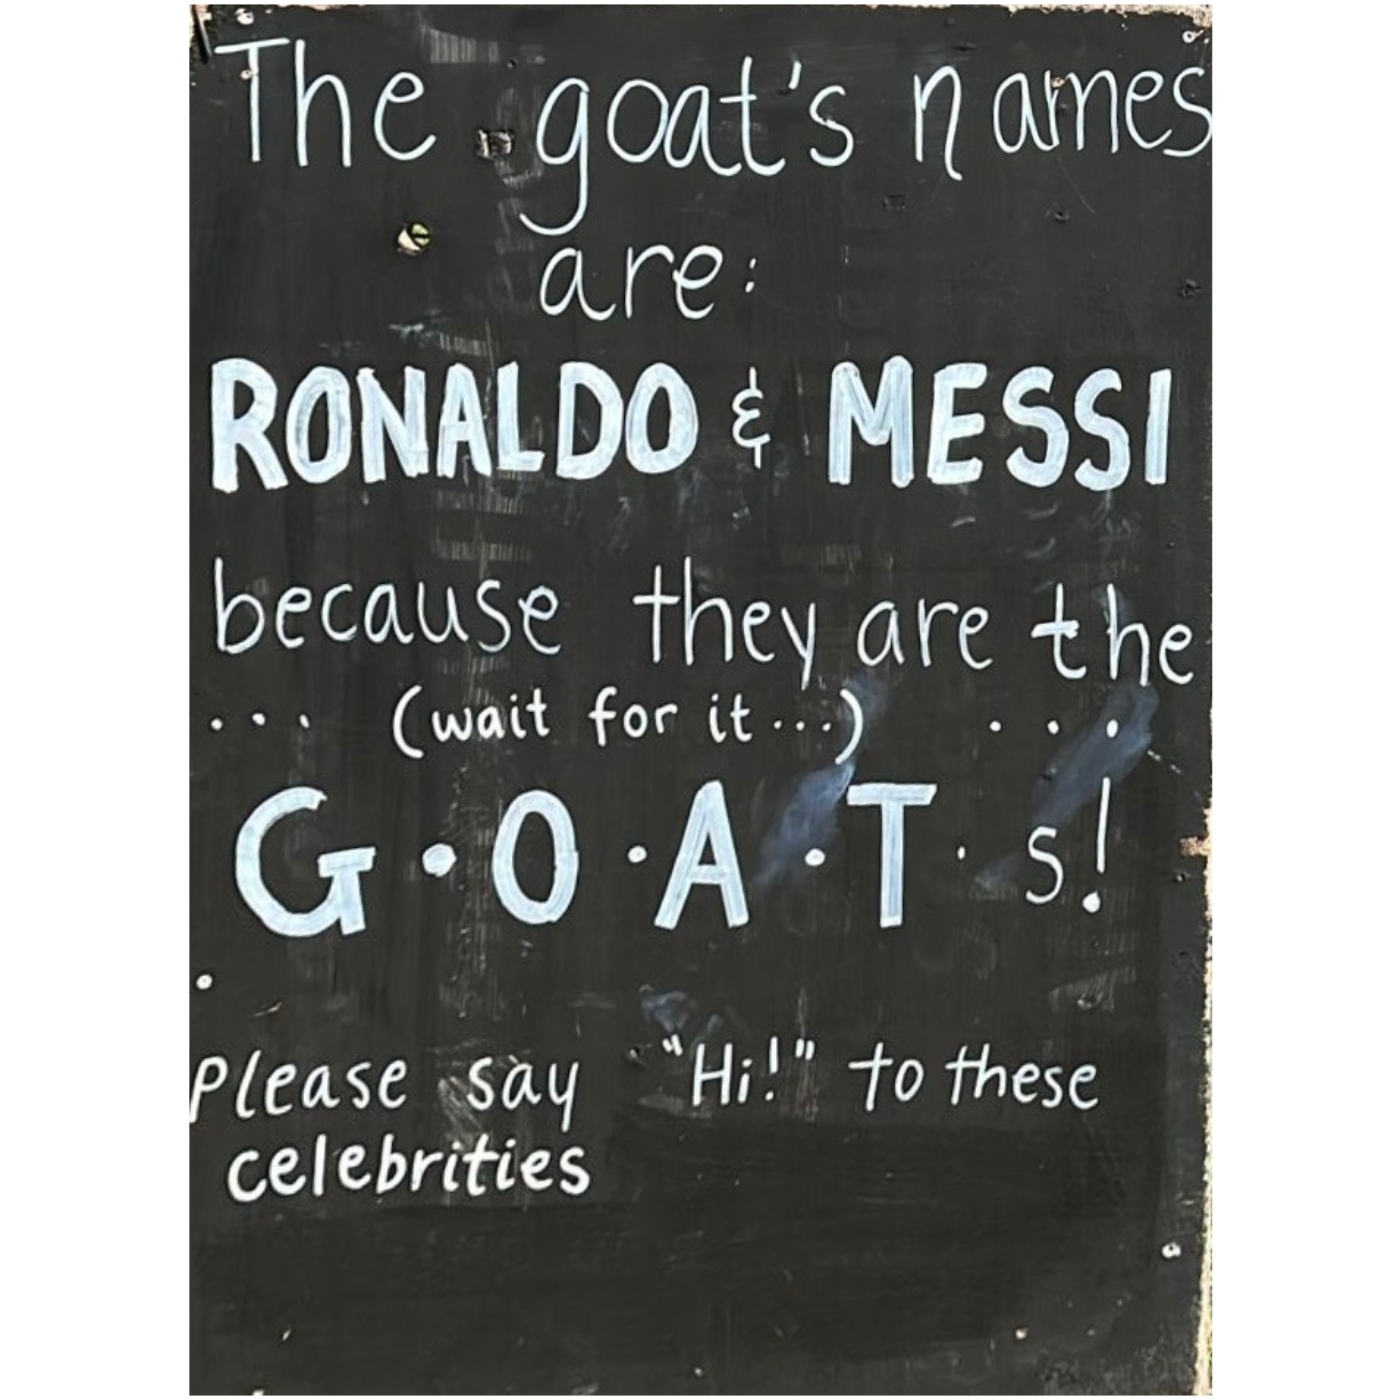 The goat's names
are:
RONALDO & MESSI
because they are the
... (wait for it...) ...
G·O·A·T·s!
Please say "Hi!" to these
celebrities